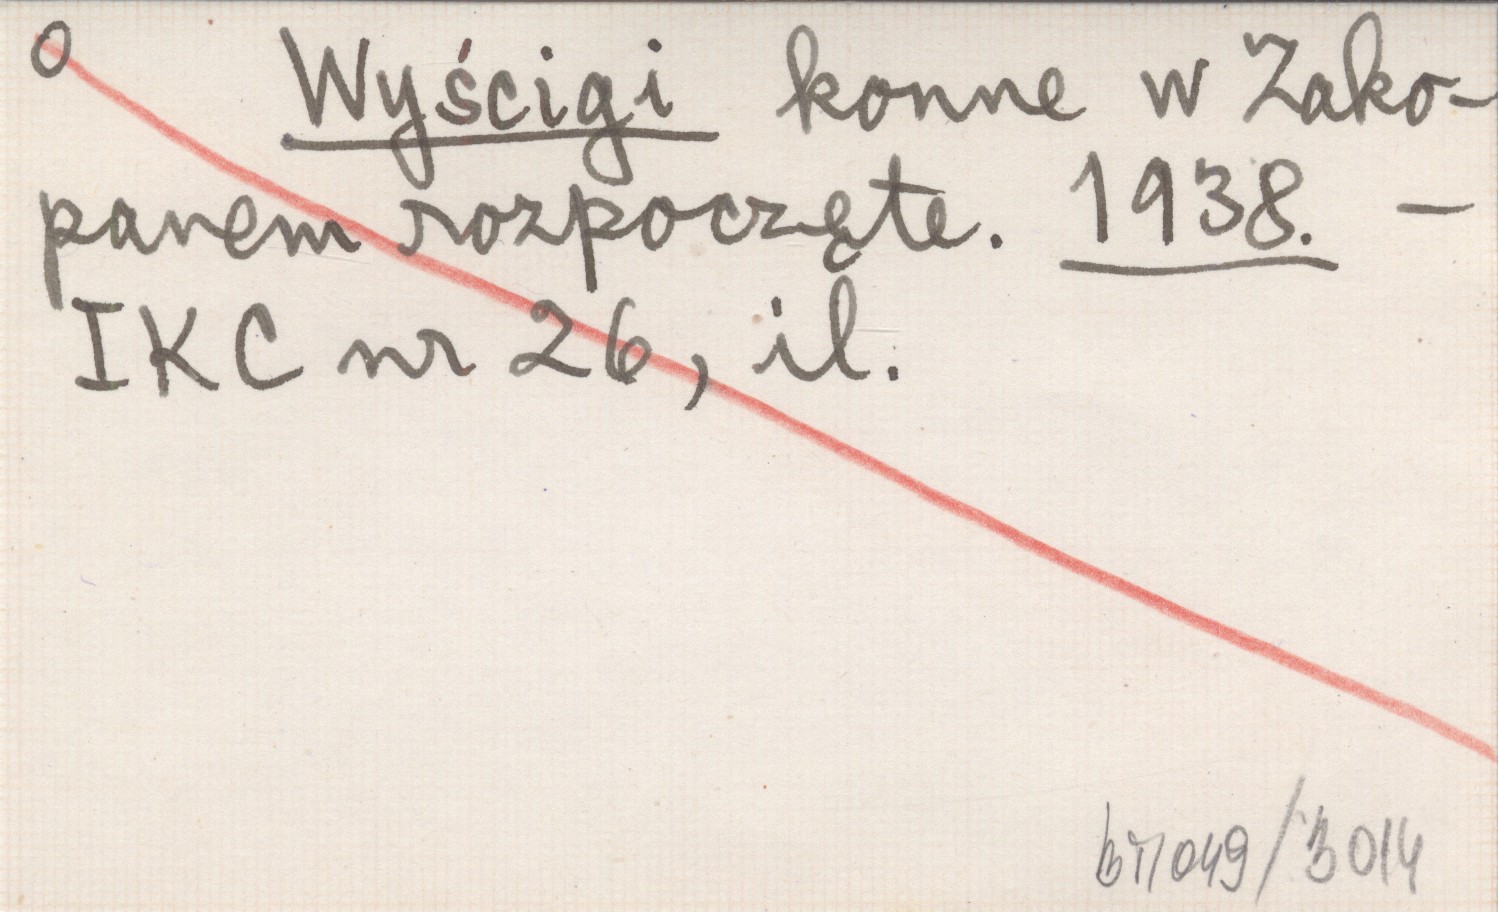 O Wyścigi konne w Zako-
panem rozpoczęte. 1938. –
IKC nr 26, il.
049/3014